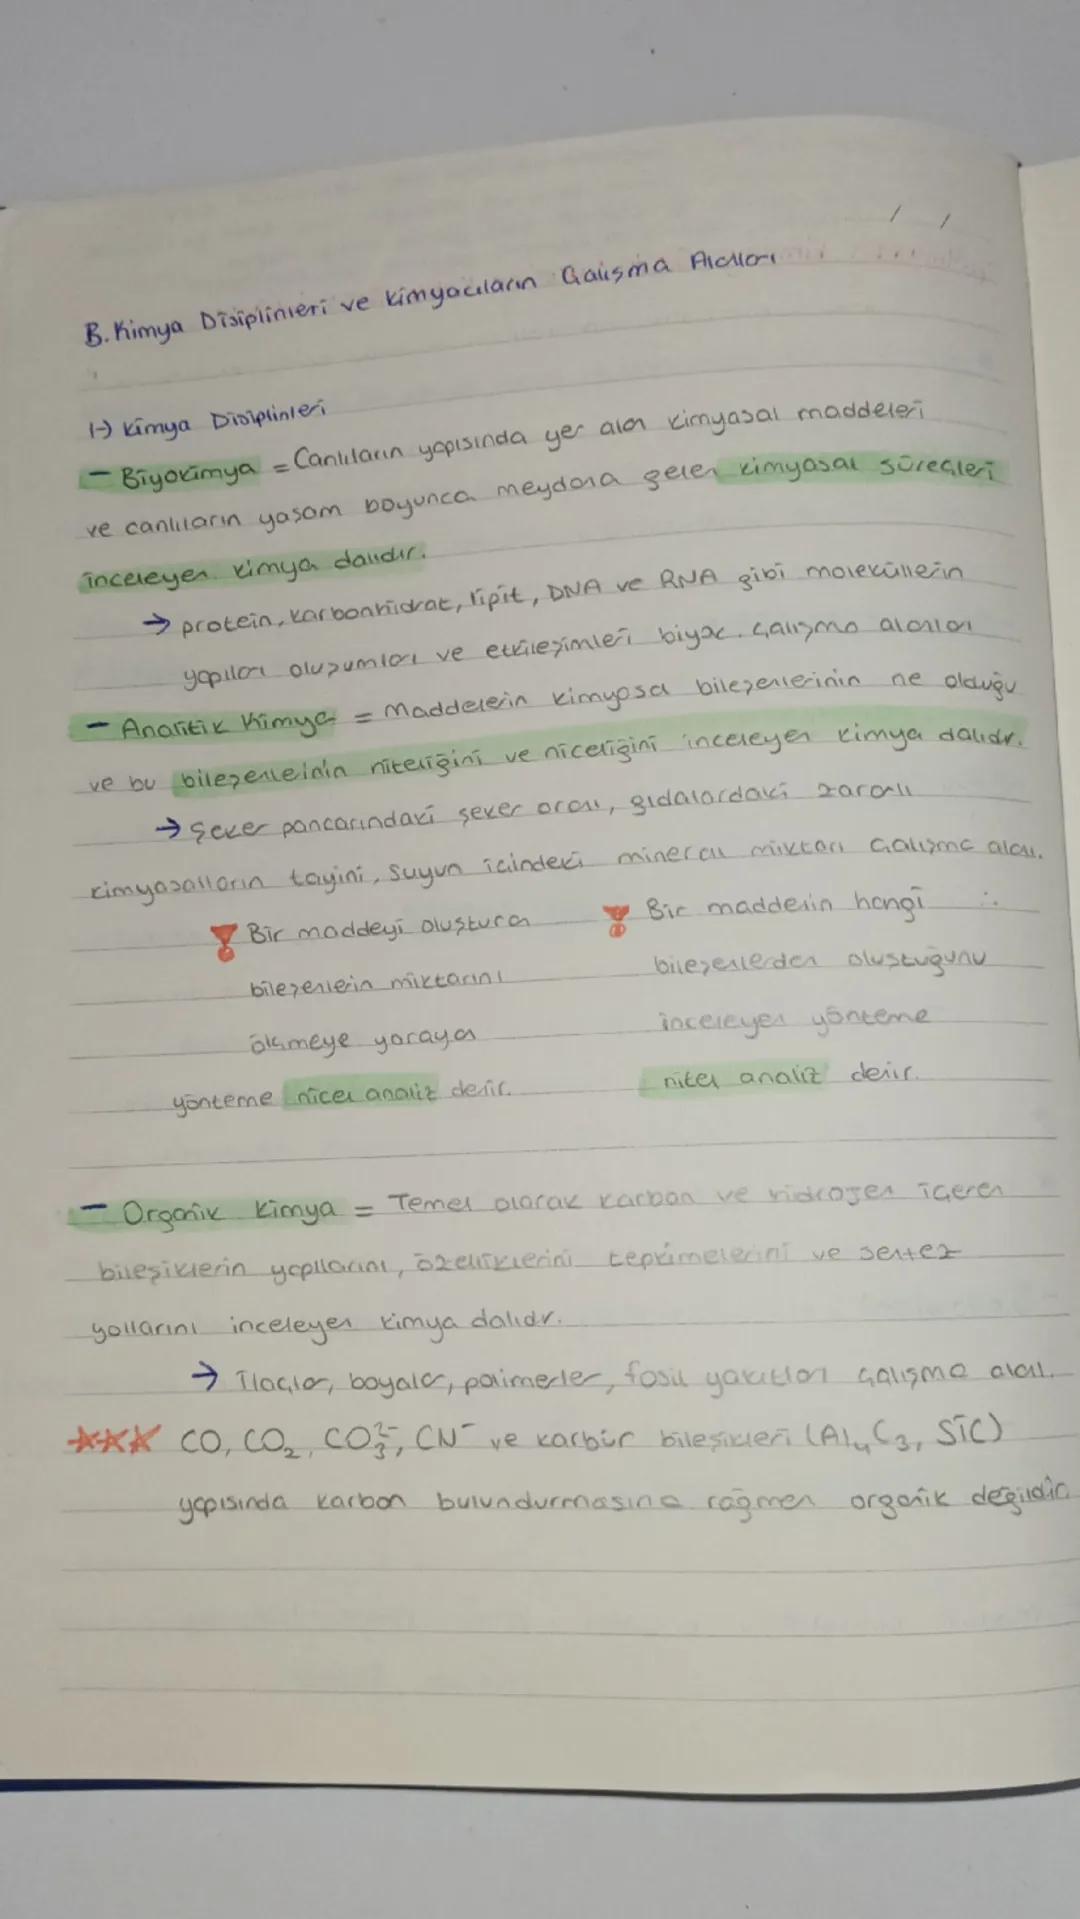 / /
B. Kimya Disiplinleri ve Kimyacıların Çalışma Alanları
1-) Kimya Disiplinleri
- Biyokimya = Canlıların yapısında yer alan kimyasal maddeleri
ve canlıların yaşam boyunca meydana gelen kimyasal süreçleri
inceleyen kimya dalıdır.
→ protein, karbonhidrat, lipit, DNA ve RNA gibi moleküllerin
yapıları oluşumları ve etkileşimleri biyok. çalışma alanları
- Analitik Kimya = Maddelerin kimyasal bileşenlerinin ne olduğu
ve bu bileşenlerinin niteliğini ve niceliğini inceleyen kimya dalıdır.
→ Şeker pancarındaki şeker oranı, gıdalardaki zararlı
kimyasalların tayini, suyun içindeki mineral miktarı çalışma alanı.
Bir maddeyi oluşturan
bileşenlerin miktarını
ölçmeye yarayan
yönteme nicel analiz denir.
Bir maddenin hangi
bileşenlerden oluştuğunu
inceleyen yönteme
nitel analiz denir.
- Organik Kimya = Temel olarak karbon ve hidrojen içeren
bileşiklerin yapılarını, özelliklerini tepkimelerini ve sentez
yollarını inceleyen kimya dalıdır.
→ İlaçlar, boyalar, polimerler, fosil yakıtları çalışma alanı.
*** CO, CO₂, CO₃²⁻, CN⁻ ve karbür bileşikleri (Al₄C₃, SiC)
yapısında karbon bulundurmasına rağmen organik değildir.